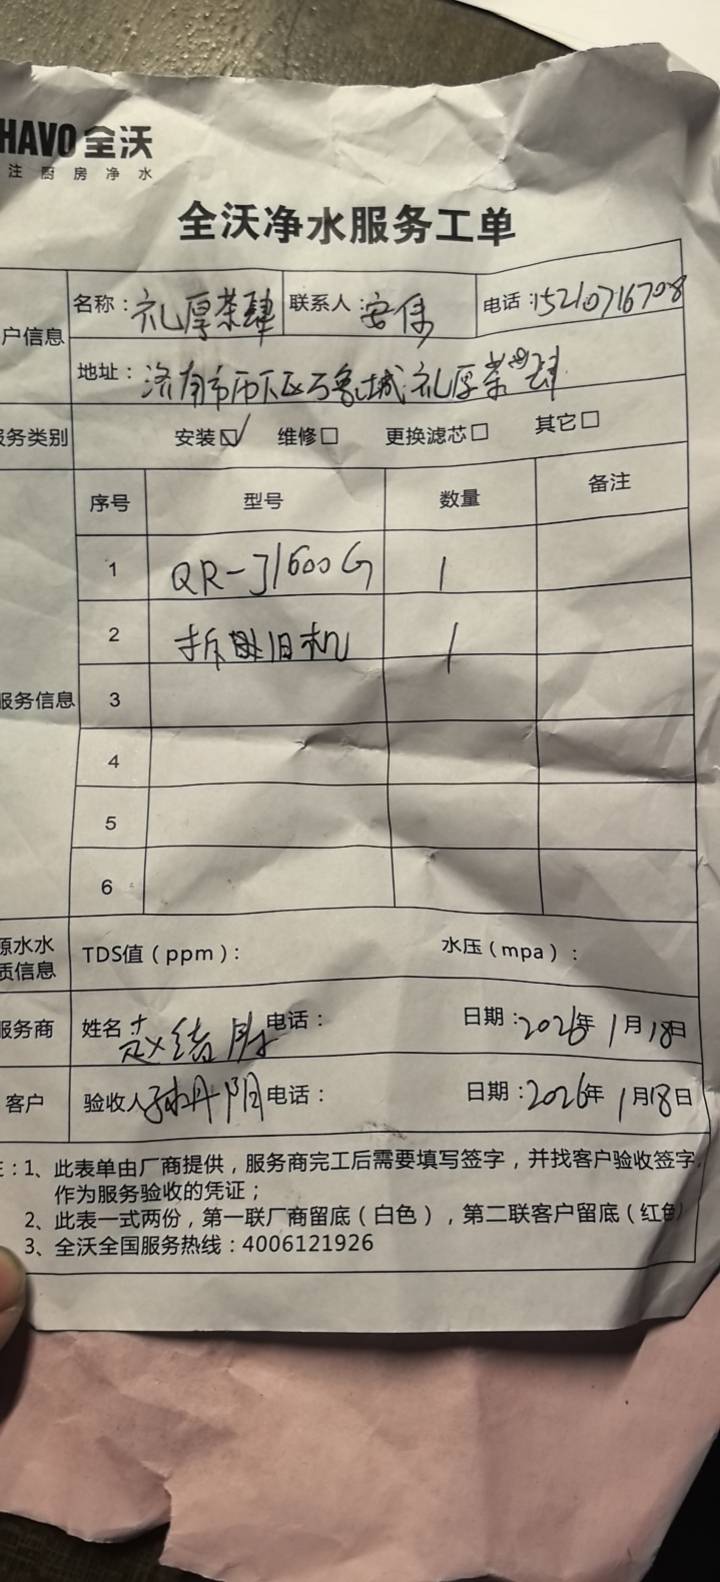 HAVO 全沃
注 厨 房 净 水
全沃净水服务工单
户信息 名称：礼厚茶肆 联系人：安保 电话：15210716708
地址：济南市历下区万象城礼厚茶肆
服务类别 安装☑ 维修□ 更换滤芯□ 其它□
序号 型号 数量 备注
1 QR-J1600G 1
2 拆 旧机 1
服务信息 3
4
5
6
原水水质信息 TDS值（ppm）： 水压（mpa）：
服务商 姓名：赵绪 电话： 日期：2026年1月18日
客户 验收人 丹阳 电话： 日期：2026年1月18日
注：1、此表单由厂商提供，服务商完工后需要填写签字，并找客户验收签字，
作为服务验收的凭证；
2、此表一式两份，第一联厂商留底（白色），第二联客户留底（红色）
3、全沃全国服务热线：4006121926